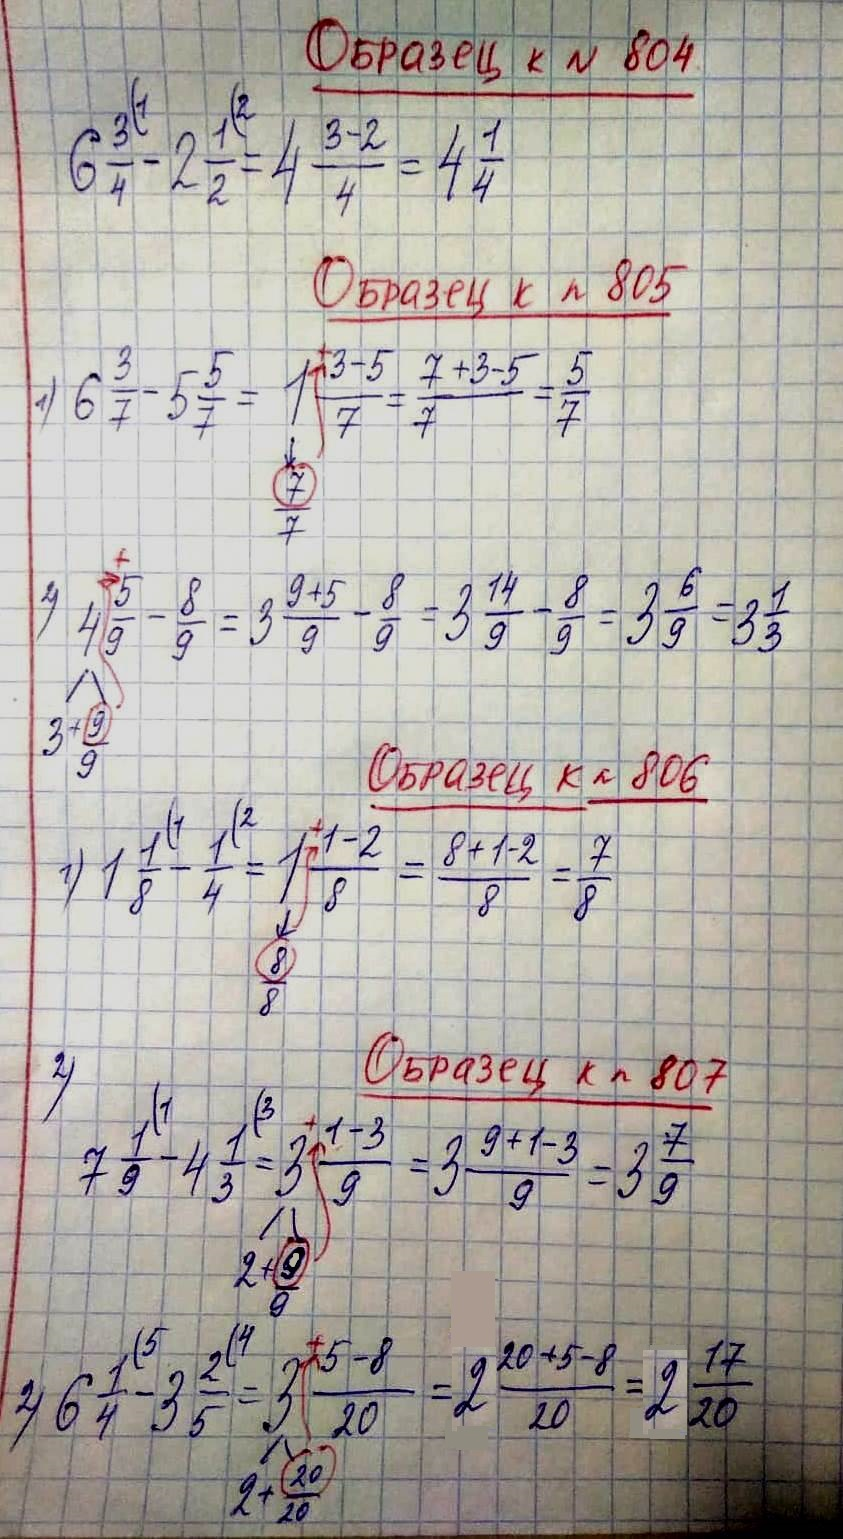 Образец к № 804
6 3/4 (1 - 2 1/2 (2 = 4 (3-2)/4 = 4 1/4
Образец к № 805
1) 6 3/7 - 5 5/7 = 1 + (3-5)/7 = (7+3-5)/7 = 5/7
7/7
2) 4 + 5/9 - 8/9 = 3 (9+5)/9 - 8/9 = 3 14/9 - 8/9 = 3 6/9 = 3 1/3
3 + 9/9
Образец к № 806
1) 1 1/8 (1 - 1/4 (2 = 1 + (1-2)/8 = (8+1-2)/8 = 7/8
8/8
2)
Образец к № 807
7 1/9 (1 - 4 1/3 (3 = 3 + (1-3)/9 = 3 (9+1-3)/9 = 3 7/9
2 + 9/9
2) 6 1/4 (5 - 3 2/5 (4 = 3 + (5-8)/20 = 2 (20+5-8)/20 = 2 17/20
2 + 20/20